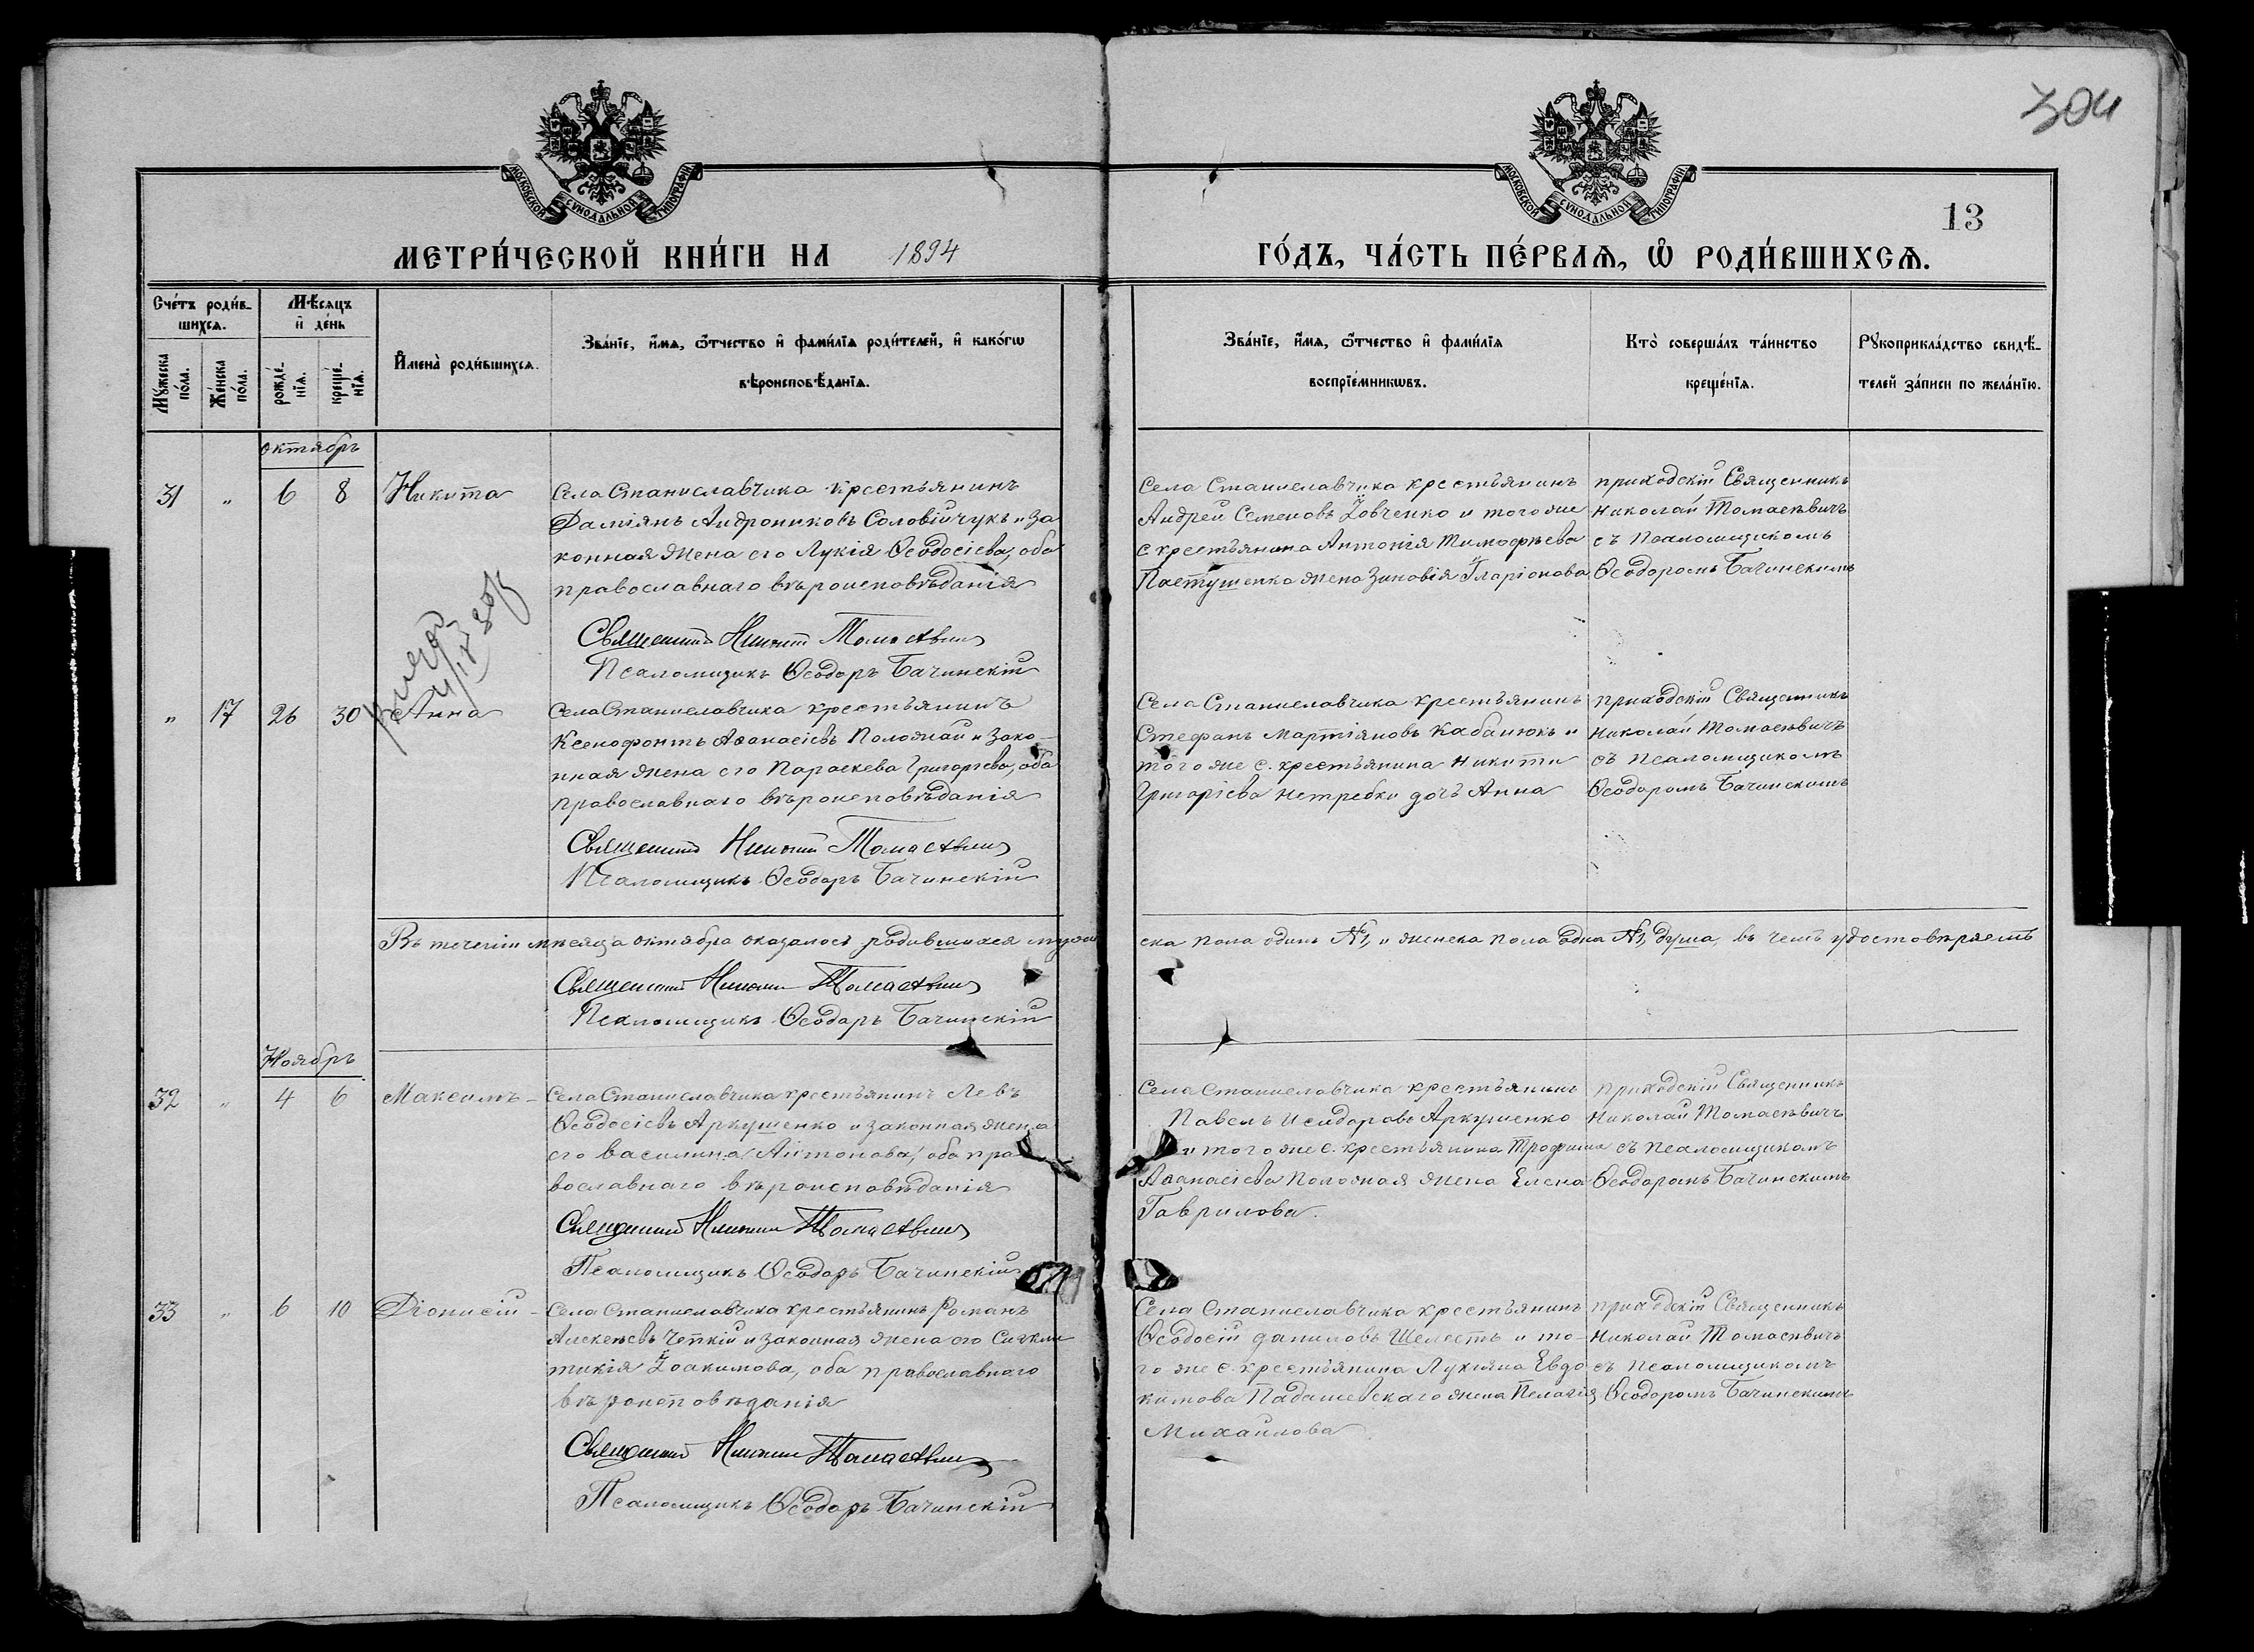 304
МОСКОВСКОЙ СѴНОДАЛЬНОЙ ТИПОГРАФІИ
МОСКОВСКОЙ СѴНОДАЛЬНОЙ ТИПОГРАФІИ
13
МЕТРИ́ЧЕСКОЙ КНИ́ГИ НА 1894
ГО́ДЪ, ЧА́СТЬ ПЕ́РВАѦ, Ѿ РОДИ́ВШИХСѦ.
Сче́тъ роди́в-
шихсѧ.
Мꙋ́жеска по́ла.
Же́нска по́ла.
Мѣ́сѧцъ
и҆ де́нь
рожде́нїѧ.
креще́нїѧ.
И҆мена̀ роди́вшихсѧ.
Зва́нїе, и҆́мѧ, ѻ҆́тчество и҆ фами́лїѧ роди́телей, и҆ како́гѡ
вѣроисповѣ́данїѧ.
Зва́нїе, и҆́мѧ, ѻ҆́тчество и҆ фами́лїѧ
воспрїе́мникѡвъ.
Кто̀ соверша́лъ та́инство
креще́нїѧ.
Рꙋкоприкла́дство свидѣ́-
телей за́писи по жела́нїю.
октябрь
31 „ 6 8 Никита
Села Станиславчика крестьянинъ
Даміянъ Андрониковъ Соловійчукъ и за
конная жена его Лукія Ѳеодосіева, оба
православнаго вѣроисповѣданія
Священникъ Николай Томасевичъ
Псаломщикъ Ѳеодоръ Бачинскій
Села Станиславчика крестьянинъ
Андрей Семеновъ Ѯовченко и того же
с крестьянина Антонія Тимофѣева
Пастушенка жена Зиновія Иларіонова
приходскій Священникъ
Николай Томасевичъ
съ псаломщикомъ
Ѳеодоромъ Бачинскимъ
„ 17 26 30 Анна
Села Станиславчика крестьянинъ
Ксенофонтъ Аѳанасіевъ Положай и зако-
нная жена его Параскева Григорьева, оба
православнаго вѣроисповѣданія
Священникъ Николай Томасевичъ
Псаломщикъ Ѳеодоръ Бачинскій
Села Станиславчика крестьянинъ
Стефанъ Мартіяновъ Кабанюкъ и
того же с. крестьянина Никити
Григоріева Нетребки дочъ Анна
приходскій Священникъ
Николай Томасевичъ
съ псаломщикомъ
Ѳеодоромъ Бачинскимъ
Въ теченіи мѣсяца октября оказалось родившихся муже
ска пола одинъ №1, и женска пола одна №1, душа, въ чемъ удостовѣряетъ
Священникъ Николай Томасевичъ
Псаломщикъ Ѳеодоръ Бачинскій
Ноябрь
32 „ 4 6 Максимъ-
Села Станиславчика крестьянинъ Левъ
Ѳеодосіевъ Аркушенко и законная жена
его Василина Антонова, оба пра
вославнаго вѣроисповѣданія
Священникъ Николай Томасевичъ
Псаломщикъ Ѳеодоръ Бачинскій
Села Станиславчика крестьянинъ
Павелъ Исидоровъ Аркушенко
и того же с. крестьянина Трофима
Аѳанасіева Положая жена Елена
Гаврилова.
приходскій Священникъ
Николай Томасевичъ
съ псаломщикомъ
Ѳеодоромъ Бачинскимъ
33 „ 6 10 Діонисій-
Села Станиславчика крестьянинъ Романъ
Алексѣевъ Чепкій и законная жена его Сигкли
тикія Іоакимова, оба православнаго
вѣроисповѣданія
Священникъ Николай Томасевичъ
Псаломщикъ Ѳеодоръ Бачинскій
Села Станиславчика крестьянинъ
Ѳеодосій Даниловъ Шелестъ и то-
го же с. крестьянина Лукіяна Евдо
кимова Падашевскаго жена Пелагія
Михайлова
приходскій Священникъ
Николай Томасевичъ
съ псаломщикомъ
Ѳеодоромъ Бачинскимъ